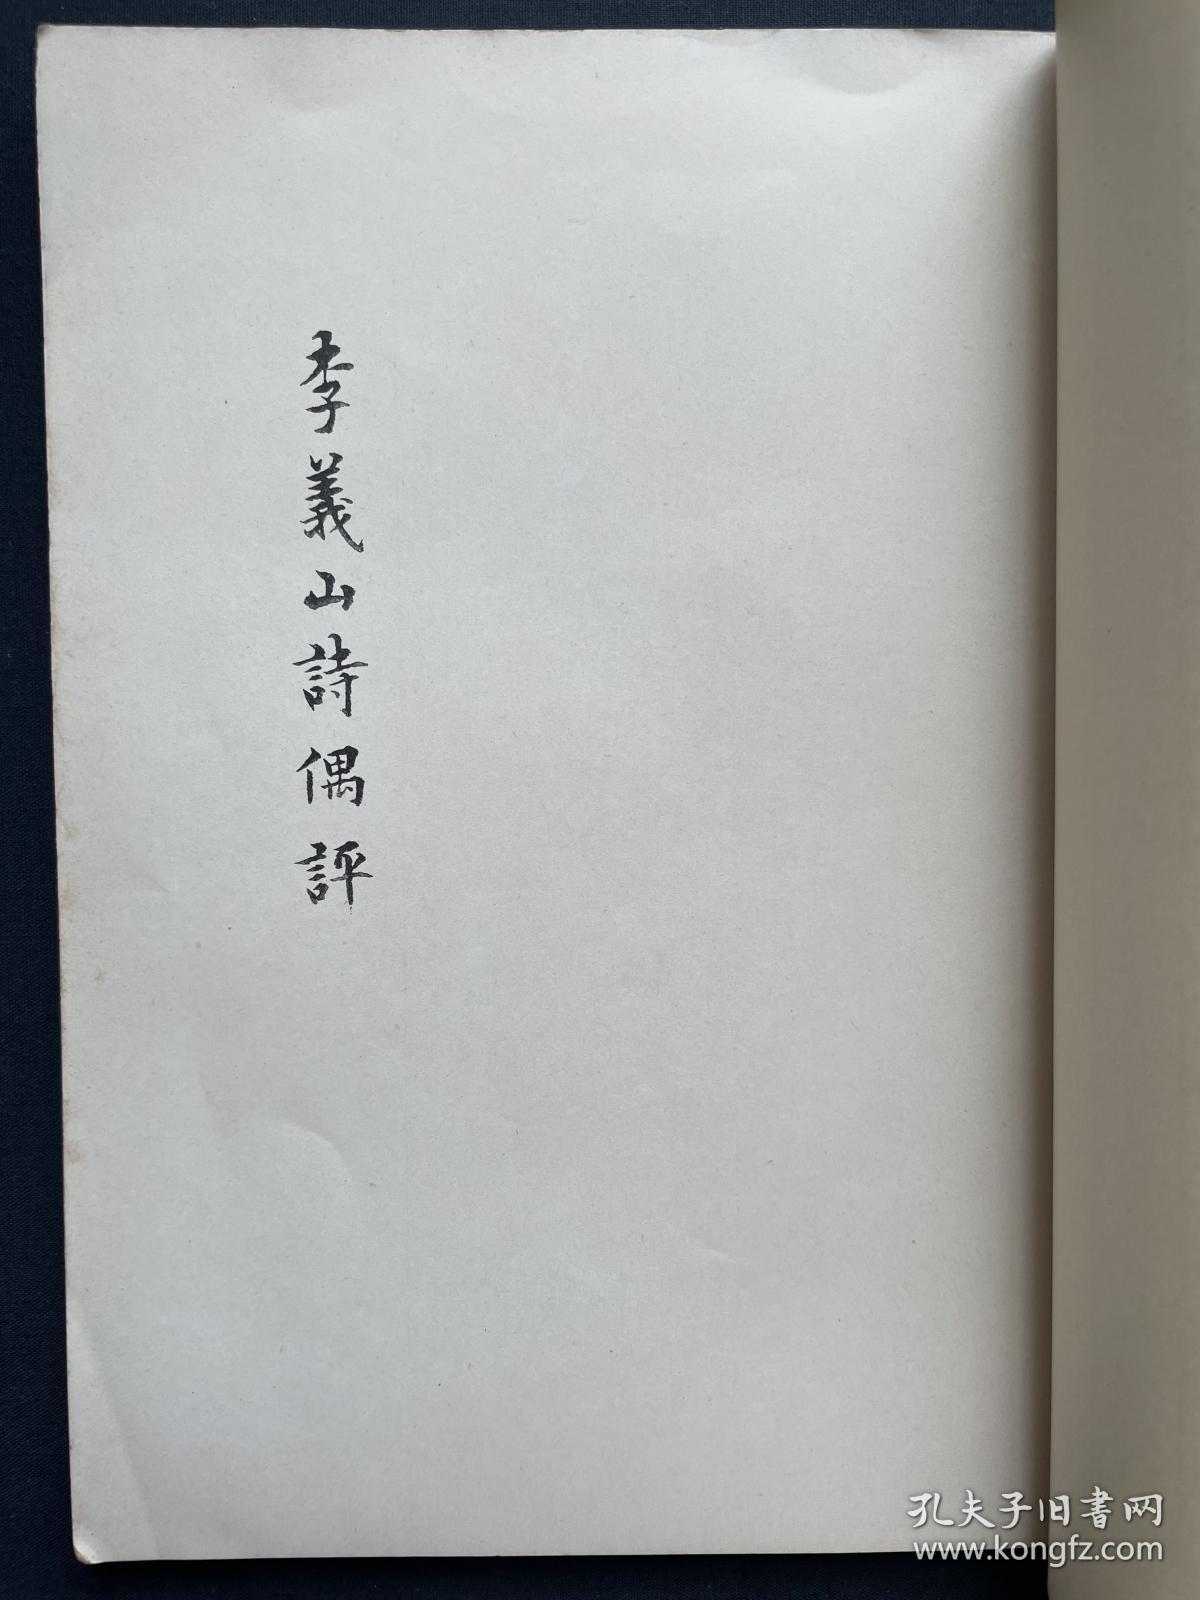 李義山詩偶評
孔夫子旧書网
www.kongfz.com